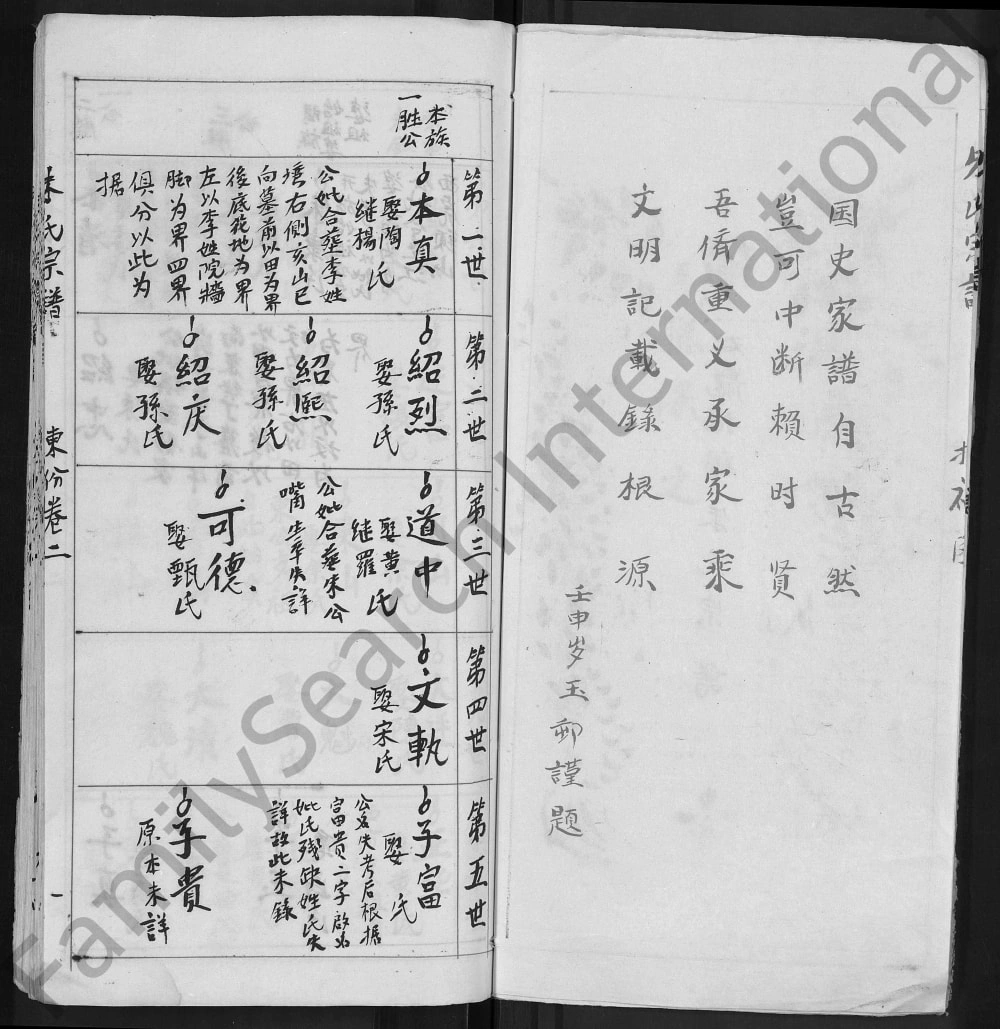 国史家譜自古然
豈可中断賴时贤
吾脩重义承家乘
文明記載錄根源
壬申岁玉卯謹題
本族
一胜公
第二世
本真
娶陶氏
继揚
公妣合墓李姓
塆右側亥山巳
向墓前以田为界
後底菀地为界
左以李姓院牆
脚为界四界
俱分以此为
据
第二世
紹烈
娶孫氏
紹熙
娶孫氏
紹庆
娶孫氏
第三世
道中
娶黄氏
继羅
公妣合墓朱公
嘴生卒失詳
可德
娶甄氏
第四世
文軌
娶宋氏
第五世
子富
娶 氏
公名失考后根据
富貴二字啟
妣氏残缺姓氏失
詳故此未錄
子貴
原本未詳
氏宗譜
東份卷二
一
FamilySearch International